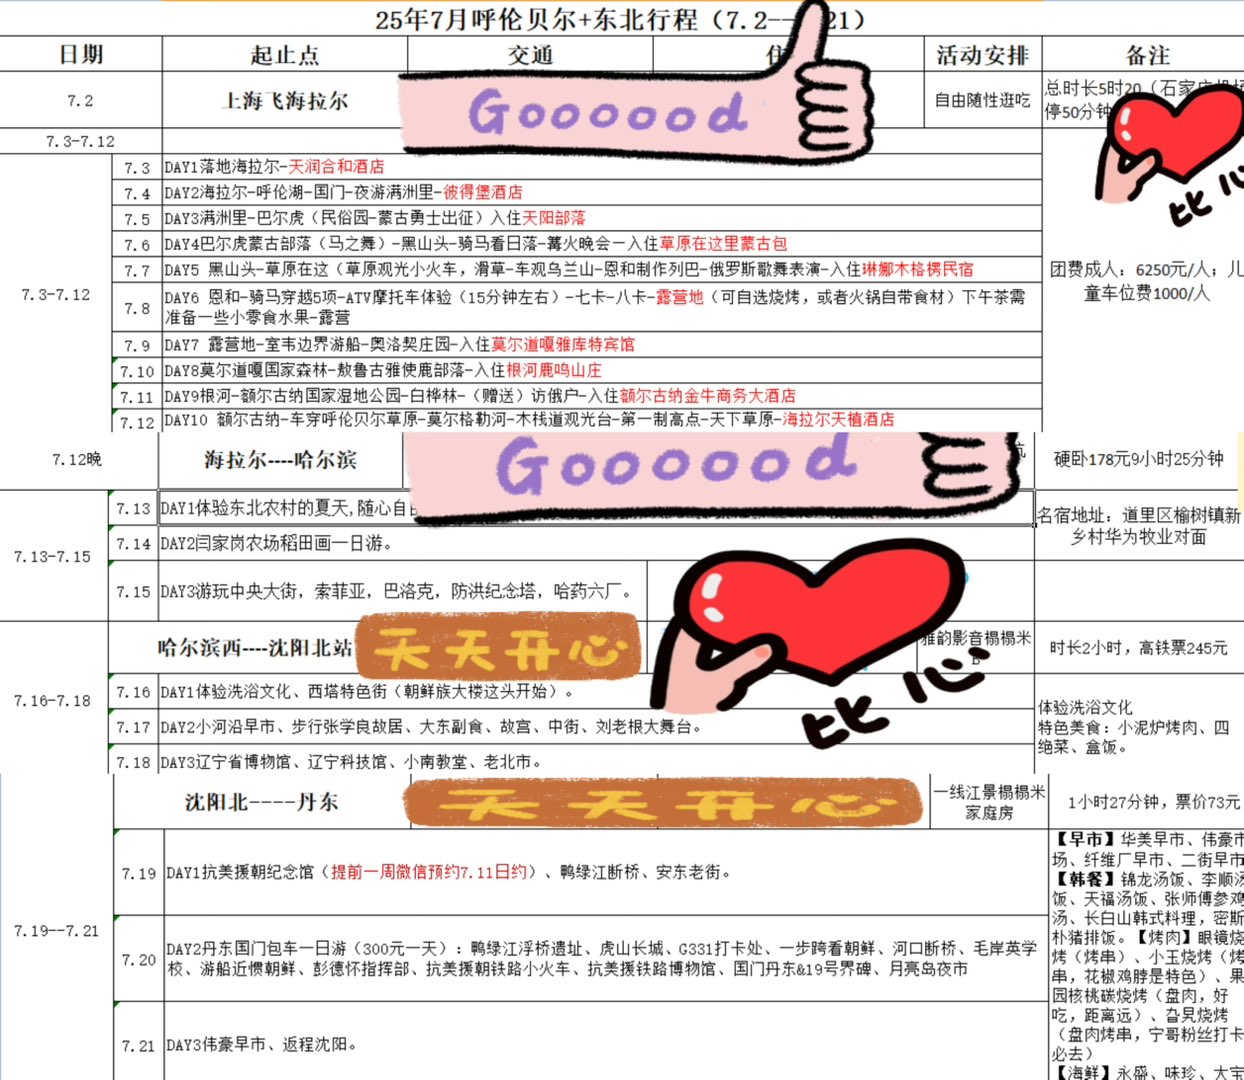 25年7月呼伦贝尔+东北行程（7.2--21）
日期 起止点 交通 住 活动安排 备注
7.2 上海飞海拉尔 Goooood 自由随性逛吃 总时长5时20（石家庄机场
停50分钟
比心
7.3-7.12
7.3-7.12
7.3 DAY1落地海拉尔-天润合和酒店
7.4 DAY2海拉尔-呼伦湖-国门-夜游满洲里-彼得堡酒店
7.5 DAY3满洲里-巴尔虎（民俗园-蒙古勇士出征）入住天阳部落
7.6 DAY4巴尔虎蒙古部落（马之舞）-黑山头-骑马看日落-篝火晚会一入住草原在这里蒙古包
7.7 DAY5 黑山头-草原在这（草原观光小火车，滑草-车观乌兰山-恩和制作列巴-俄罗斯歌舞表演-入住琳娜木格楞民宿
团费成人：6250元/人；儿
童车位费1000/人
7.8 DAY6 恩和-骑马穿越5项-ATV摩托车体验（15分钟左右）-七卡-八卡-露营地（可自选烧烤，或者火锅自带食材）下午茶需
准备一些小零食水果-露营
7.9 DAY7 露营地-室韦边界游船-奥洛契庄园-入住莫尔道嘎雅库特宾馆
7.10 DAY8莫尔道嘎国家森林-敖鲁古雅使鹿部落-入住根河鹿鸣山庄
7.11 DAY9根河-额尔古纳国家湿地公园-白桦林-（赠送）访俄户-入住额尔古纳金牛商务大酒店
7.12 DAY10 额尔古纳-车穿呼伦贝尔草原-莫尔格勒河-木栈道观光台-第一制高点-天下草原-海拉尔天植酒店
7.12晚 海拉尔----哈尔滨 Goooood 硬卧178元9小时25分钟
7.13-7.15
7.13 DAY1体验东北农村的夏天,随心自
名宿地址：道里区榆树镇新
乡村华为牧业对面
7.14 DAY2闫家岗农场稻田画一日游。
7.15 DAY3游玩中央大街，索菲亚，巴洛克，防洪纪念塔，哈药六厂。
哈尔滨西----沈阳北站 天天开心 雅韵影音榻榻米
时长2小时，高铁票245元
比心
7.16-7.18
7.16 DAY1体验洗浴文化、西塔特色街（朝鲜族大楼这头开始）。
7.17 DAY2小河沿早市、步行张学良故居、大东副食、故宫、中街、刘老根大舞台。
7.18 DAY3辽宁省博物馆、辽宁科技馆、小南教堂、老北市。
体验洗浴文化
特色美食：小泥炉烤肉、四
绝菜、盒饭。
沈阳北----丹东 天天开心 一线江景榻榻米
家庭房
1小时27分钟，票价73元
7.19--7.21
7.19 DAY1抗美援朝纪念馆（提前一周微信预约7.11日约）、鸭绿江断桥、安东老街。
7.20 DAY2丹东国门包车一日游（300元一天）：鸭绿江浮桥遗址、虎山长城、G331打卡处、一步跨看朝鲜、河口断桥、毛岸英学
校、游船近惯朝鲜、彭德怀指挥部、抗美援朝铁路小火车、抗美援铁路博物馆、国门丹东&19号界碑、月亮岛夜市
7.21 DAY3伟豪早市、返程沈阳。
【早市】华美早市、伟豪市
场、纤维厂早市、二街早市
【韩餐】锦龙汤饭、李顺汤
饭、天福汤饭、张师傅参鸡
汤、长白山韩式料理，密斯
朴猪排饭。【烤肉】眼镜烧
烤（烤串）、小玉烧烤（烤
串，花椒鸡脖是特色）、果
园核桃碳烧烤（盘肉，好
吃，距离远）、旮旯烧烤
（盘肉烤串，宁哥粉丝打卡
必去）
【海鲜】永盛、味珍、大宝